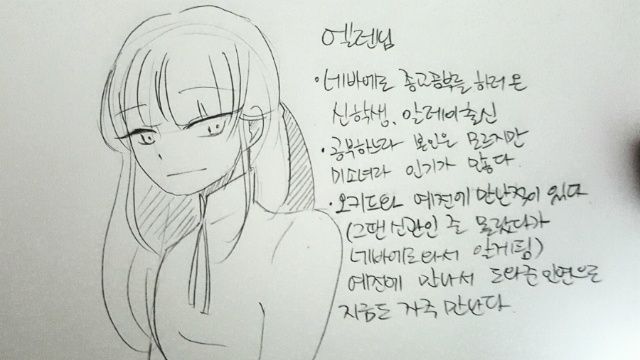 엘렌님
• 네바에로 종교공부를 하러 온
신학생. 알레이 출신
• 공부하느라 본인은 모르지만
미소녀라 인기가 많다.
• 오키드와 예전에 만난적이 있다
(그땐 신관인 줄 몰랐다가
네바에로 와서 알게됨)
예전에 만나서 도와준 인연으로
지금도 자주 만난다.